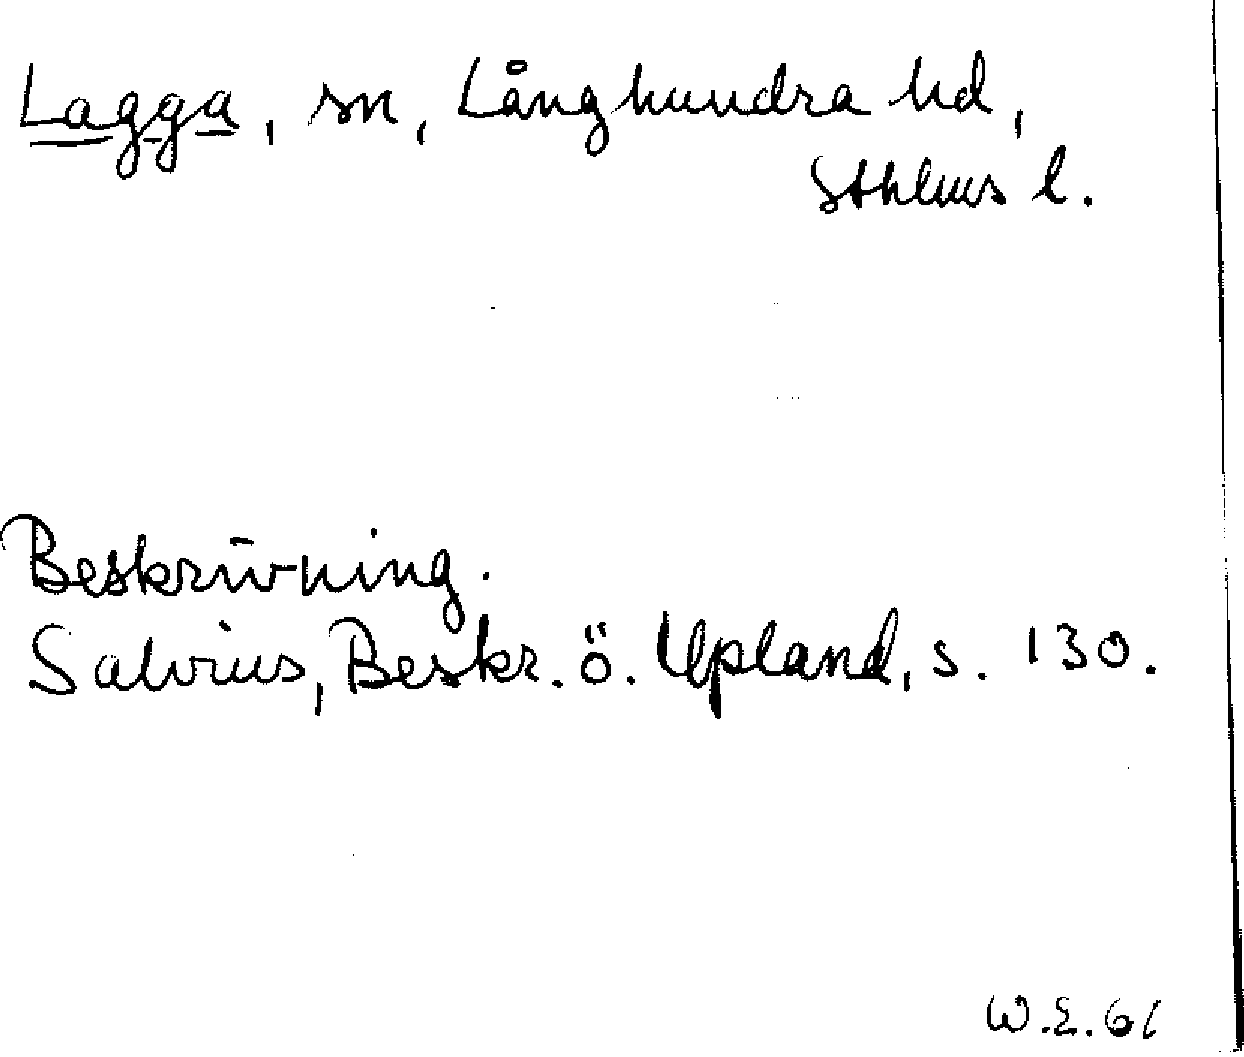 Lagga, sn, Långhundra hd,
Sthlms l.
Beskrivning.
Salvius, Beskr. ö. Upland, s. 130.
W.E. 61